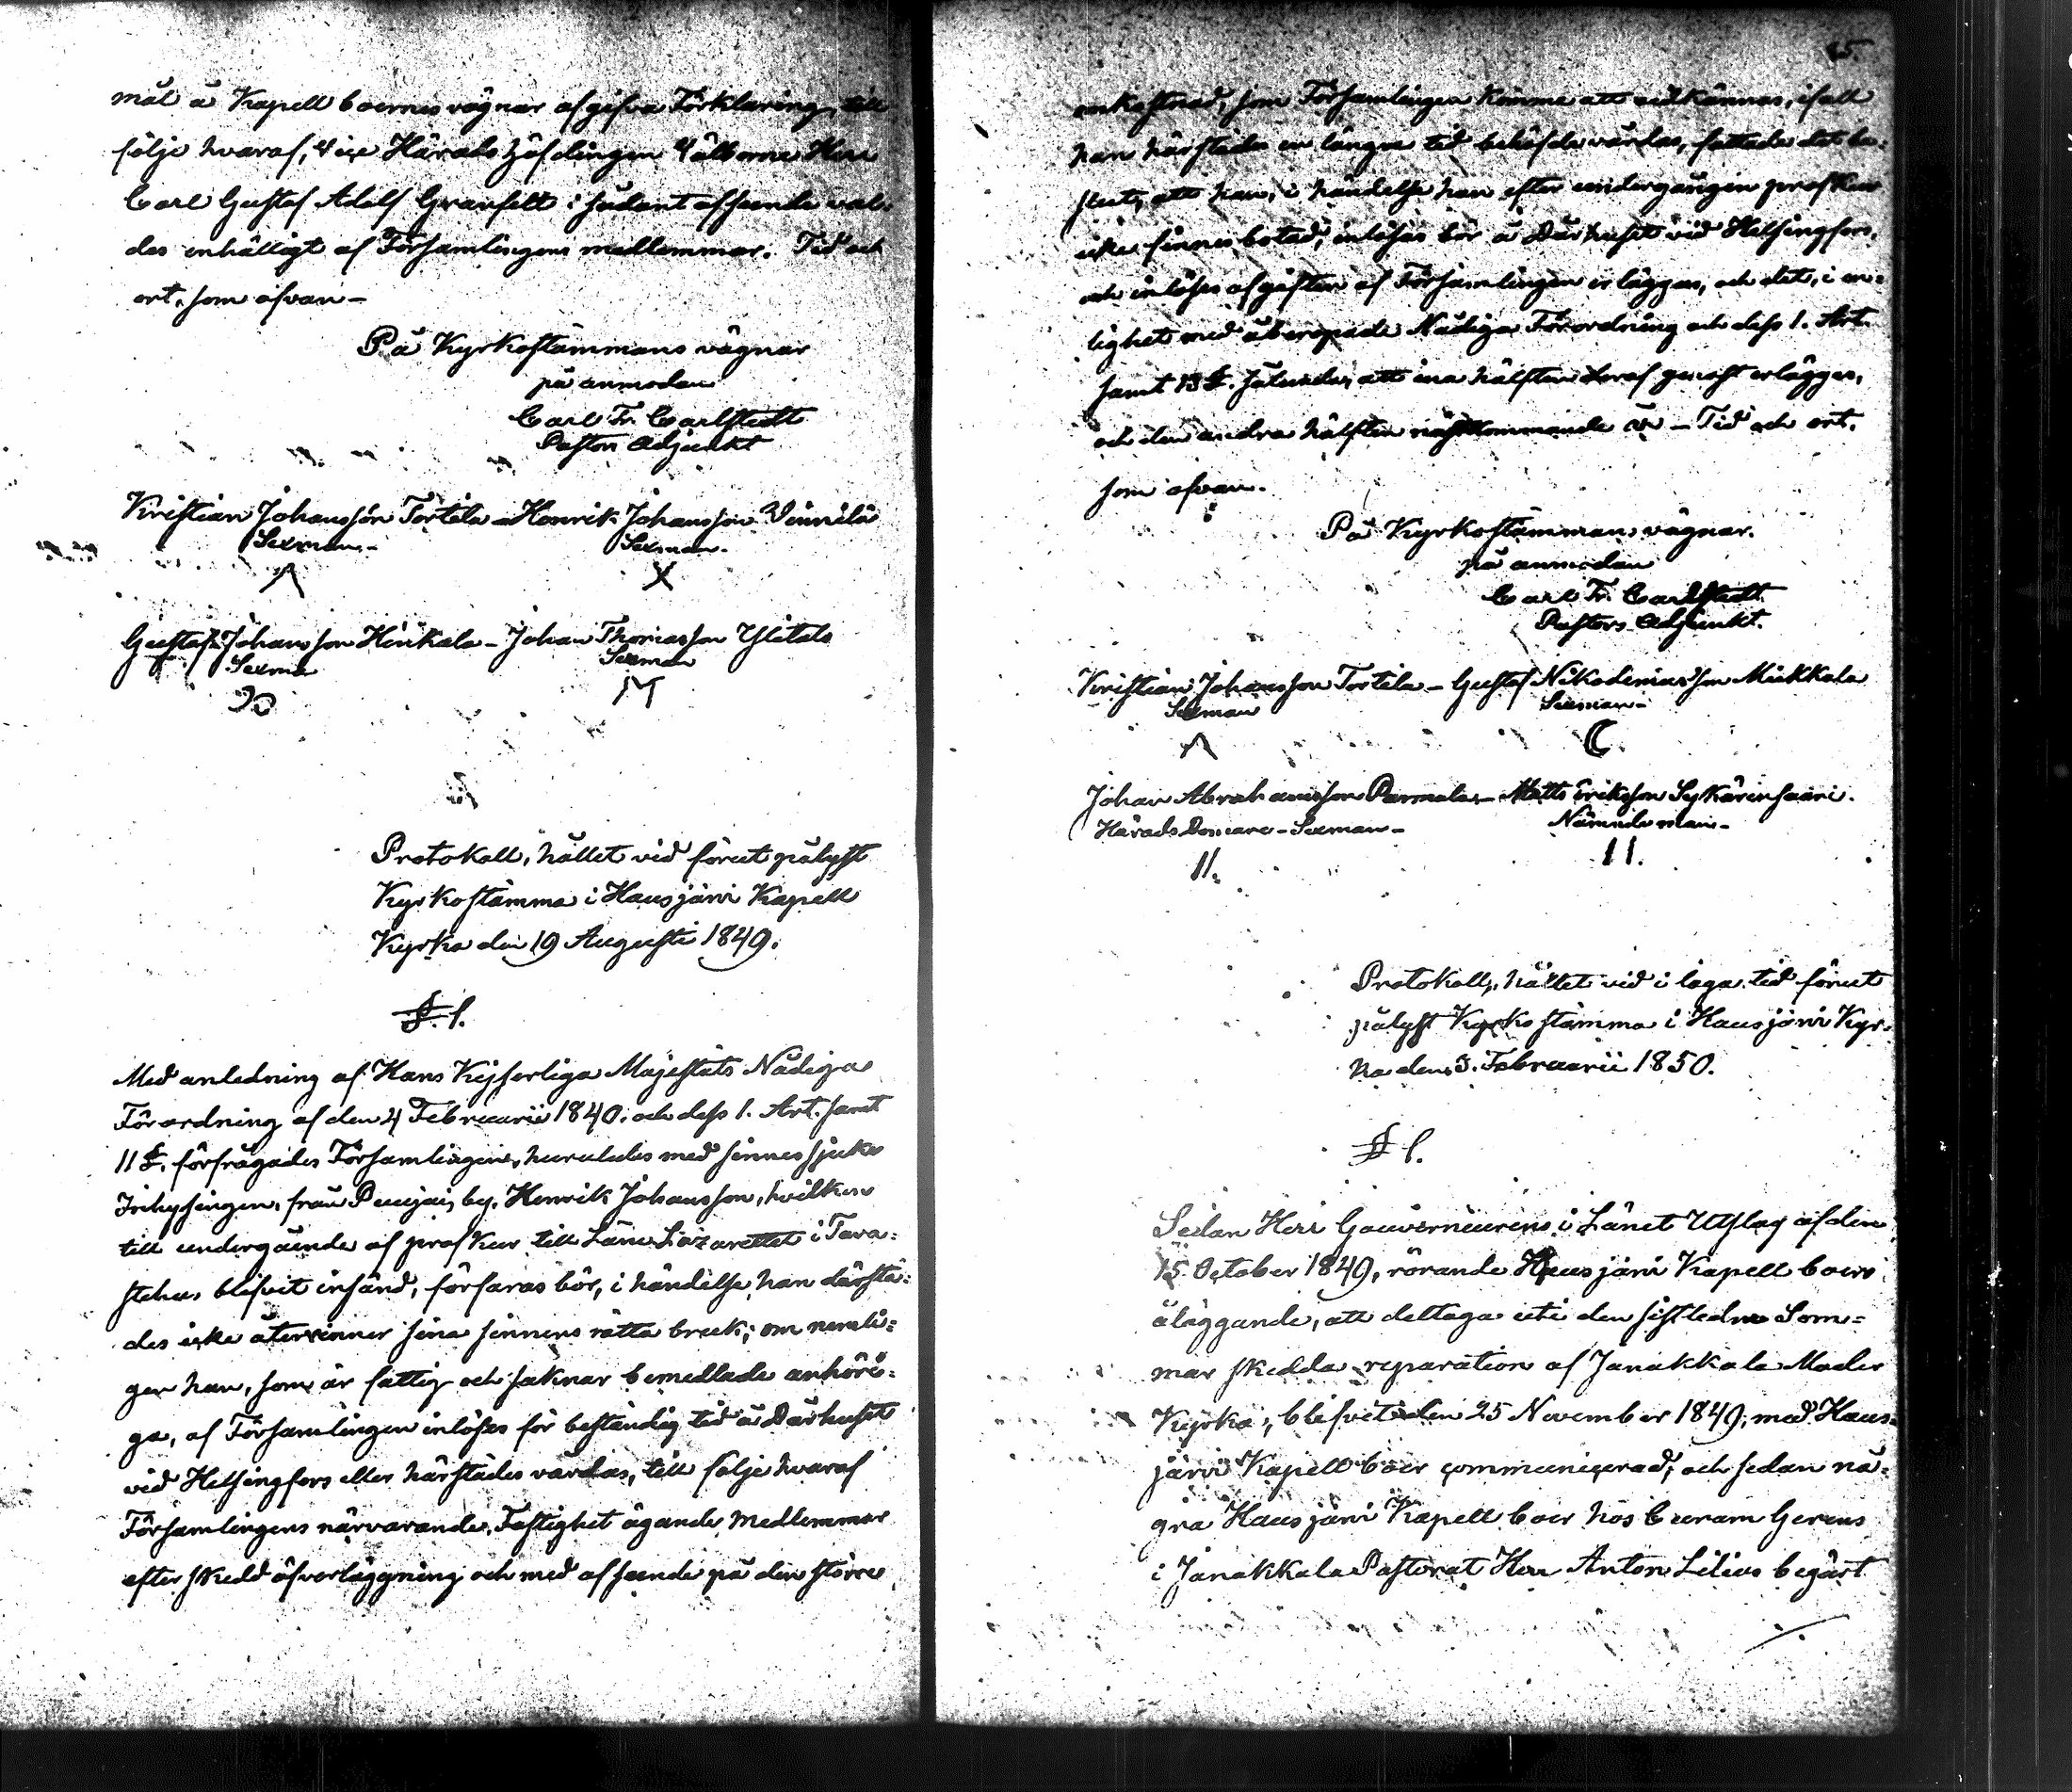 mål å Kapellboernes vägnar afgifva Förklaring, till
följe hvaraf, Vice Härads Höfdingen Välborne Herr
Carl Gustaf Adolf Granfelt i sådant afseende val-
des enhälligt af Församlingens medlemmar. Tid och
ort, som ofvan –
På Kyrkostämmans vägnar
på anmodan
Carl Fr. Carlstedt
Pastors Adjunkt
Kristian Johansson Tortila – Henrik Johansson
Sexman – Sexman.
Gustaf Johansson Hinkala – Johan Thomasson Ylitalo
Sexman Sexman
Protokoll, hållet vid förut pålyst
Kyrkostämma i Hausjärvi Kapell
Kyrka den 19 Augusti 1849.
§. 1.
Med anledning af Hans Kejserliga Majestäts Nådiga
Förordning af den 4 Februarii 1840. och dess 1. Art. samt
11 §. förfrågades Församlingen, huruledes med sinnessjuke
Inhysingen, från by, Henrik Johansson, hvilken
till undergående af profkur till Läns Lazarettet i Tava=
stehus blifvit insänd, förfaras bör, i händelse han därstä=
des icke återvinner sina sinnens rätta bruk; om nemli=
gen han, som är fattig och saknar bemedlade anhöri=
ga, af Församlingen inlöses för beständig tid å Dårhuset
vid Helsingfors eller härstädes vårdas, till följe hvaraf
Församlingens närvarande, Fastighet ägande Medlemmar
efter skedd öfverläggning och med afseende på den större
omkostnad, som Församlingen komme att vidkännas, ifall
han härstädes en längre tid behöfde vårdas, fattade det be=
slut, att han, i händelse han efter undergången profkur
icke finnes botad, inlösas bör å Dårhuset vid Helsingfors,
och inlösesafgiften af Församlingen erlägges, och det, i en=
lighet med åberopade Nådiga Förordning och dess 1. Art.
samt 13 §. sålunda, att ena hälften deraf genast erlägges,
och den andra hälften nästkommande år – Tid och ort,
som ofvan.
På Kyrkostämmans vägnar.
på anmodan
Carl Fr. Carlstedt
Pastors Adjunkt.
Kristian Johansson Tortila – Gustaf Nikodemusson Mickkala
Sexman Sexman –
Johan Abrahamsson Parmala – Matts Eriksson Sykärinsaari.
Härads Domare – Sexman – Nämndeman –
Protokoll, hållet vid i laga tid förut
pålyst Kyrkostämma i Hausjärvi Kyr-
ka den 3. Februarii 1850.
§ 1.
Sedan Herr Gouverneurens i Länet Utslag af den
15 October 1849, rörande Hausjärvi Kapellboers
åläggande, att deltaga uti den sistledne Som=
mar skedda reparation af Janakkala Moder
Kyrka, blifvit den 25 November 1849, med Haus=
järvi Kapellboer communicerad; och sedan nå=
gra Hausjärvi Kapellboer hos Curam Gerens
i Janakkala Pastorat Herr Anton Lilius begärt